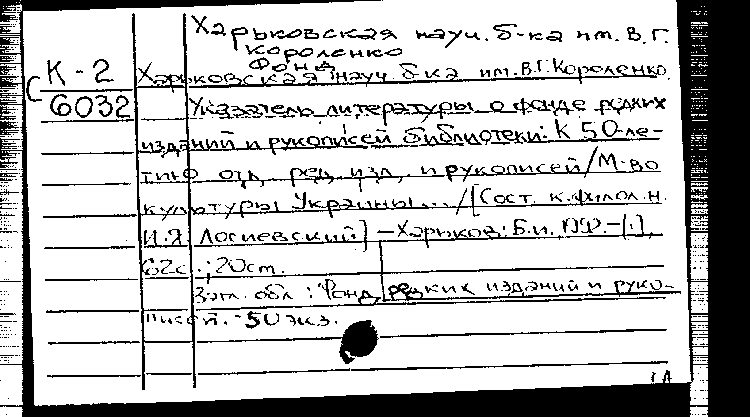 Харьковская науч. б-ка им. В.Г.
Короленко
Фонд
К-2 Харьковская науч. б-ка им. В.Г. Короленко.
С 6032 Указатель литературы о фонде редких
изданий и рукописей библиотеки: К 50-ле-
тию отд. ред. изд. и рукописей/М-во
культуры Украины.../[Сост. к.филол.н.
И.Я. Лосиевский] – Харьков: Б.и.,
62с.; 20см.
Загл. обл.: Фонд редких изданий и руко-
писей. - 50 экз.